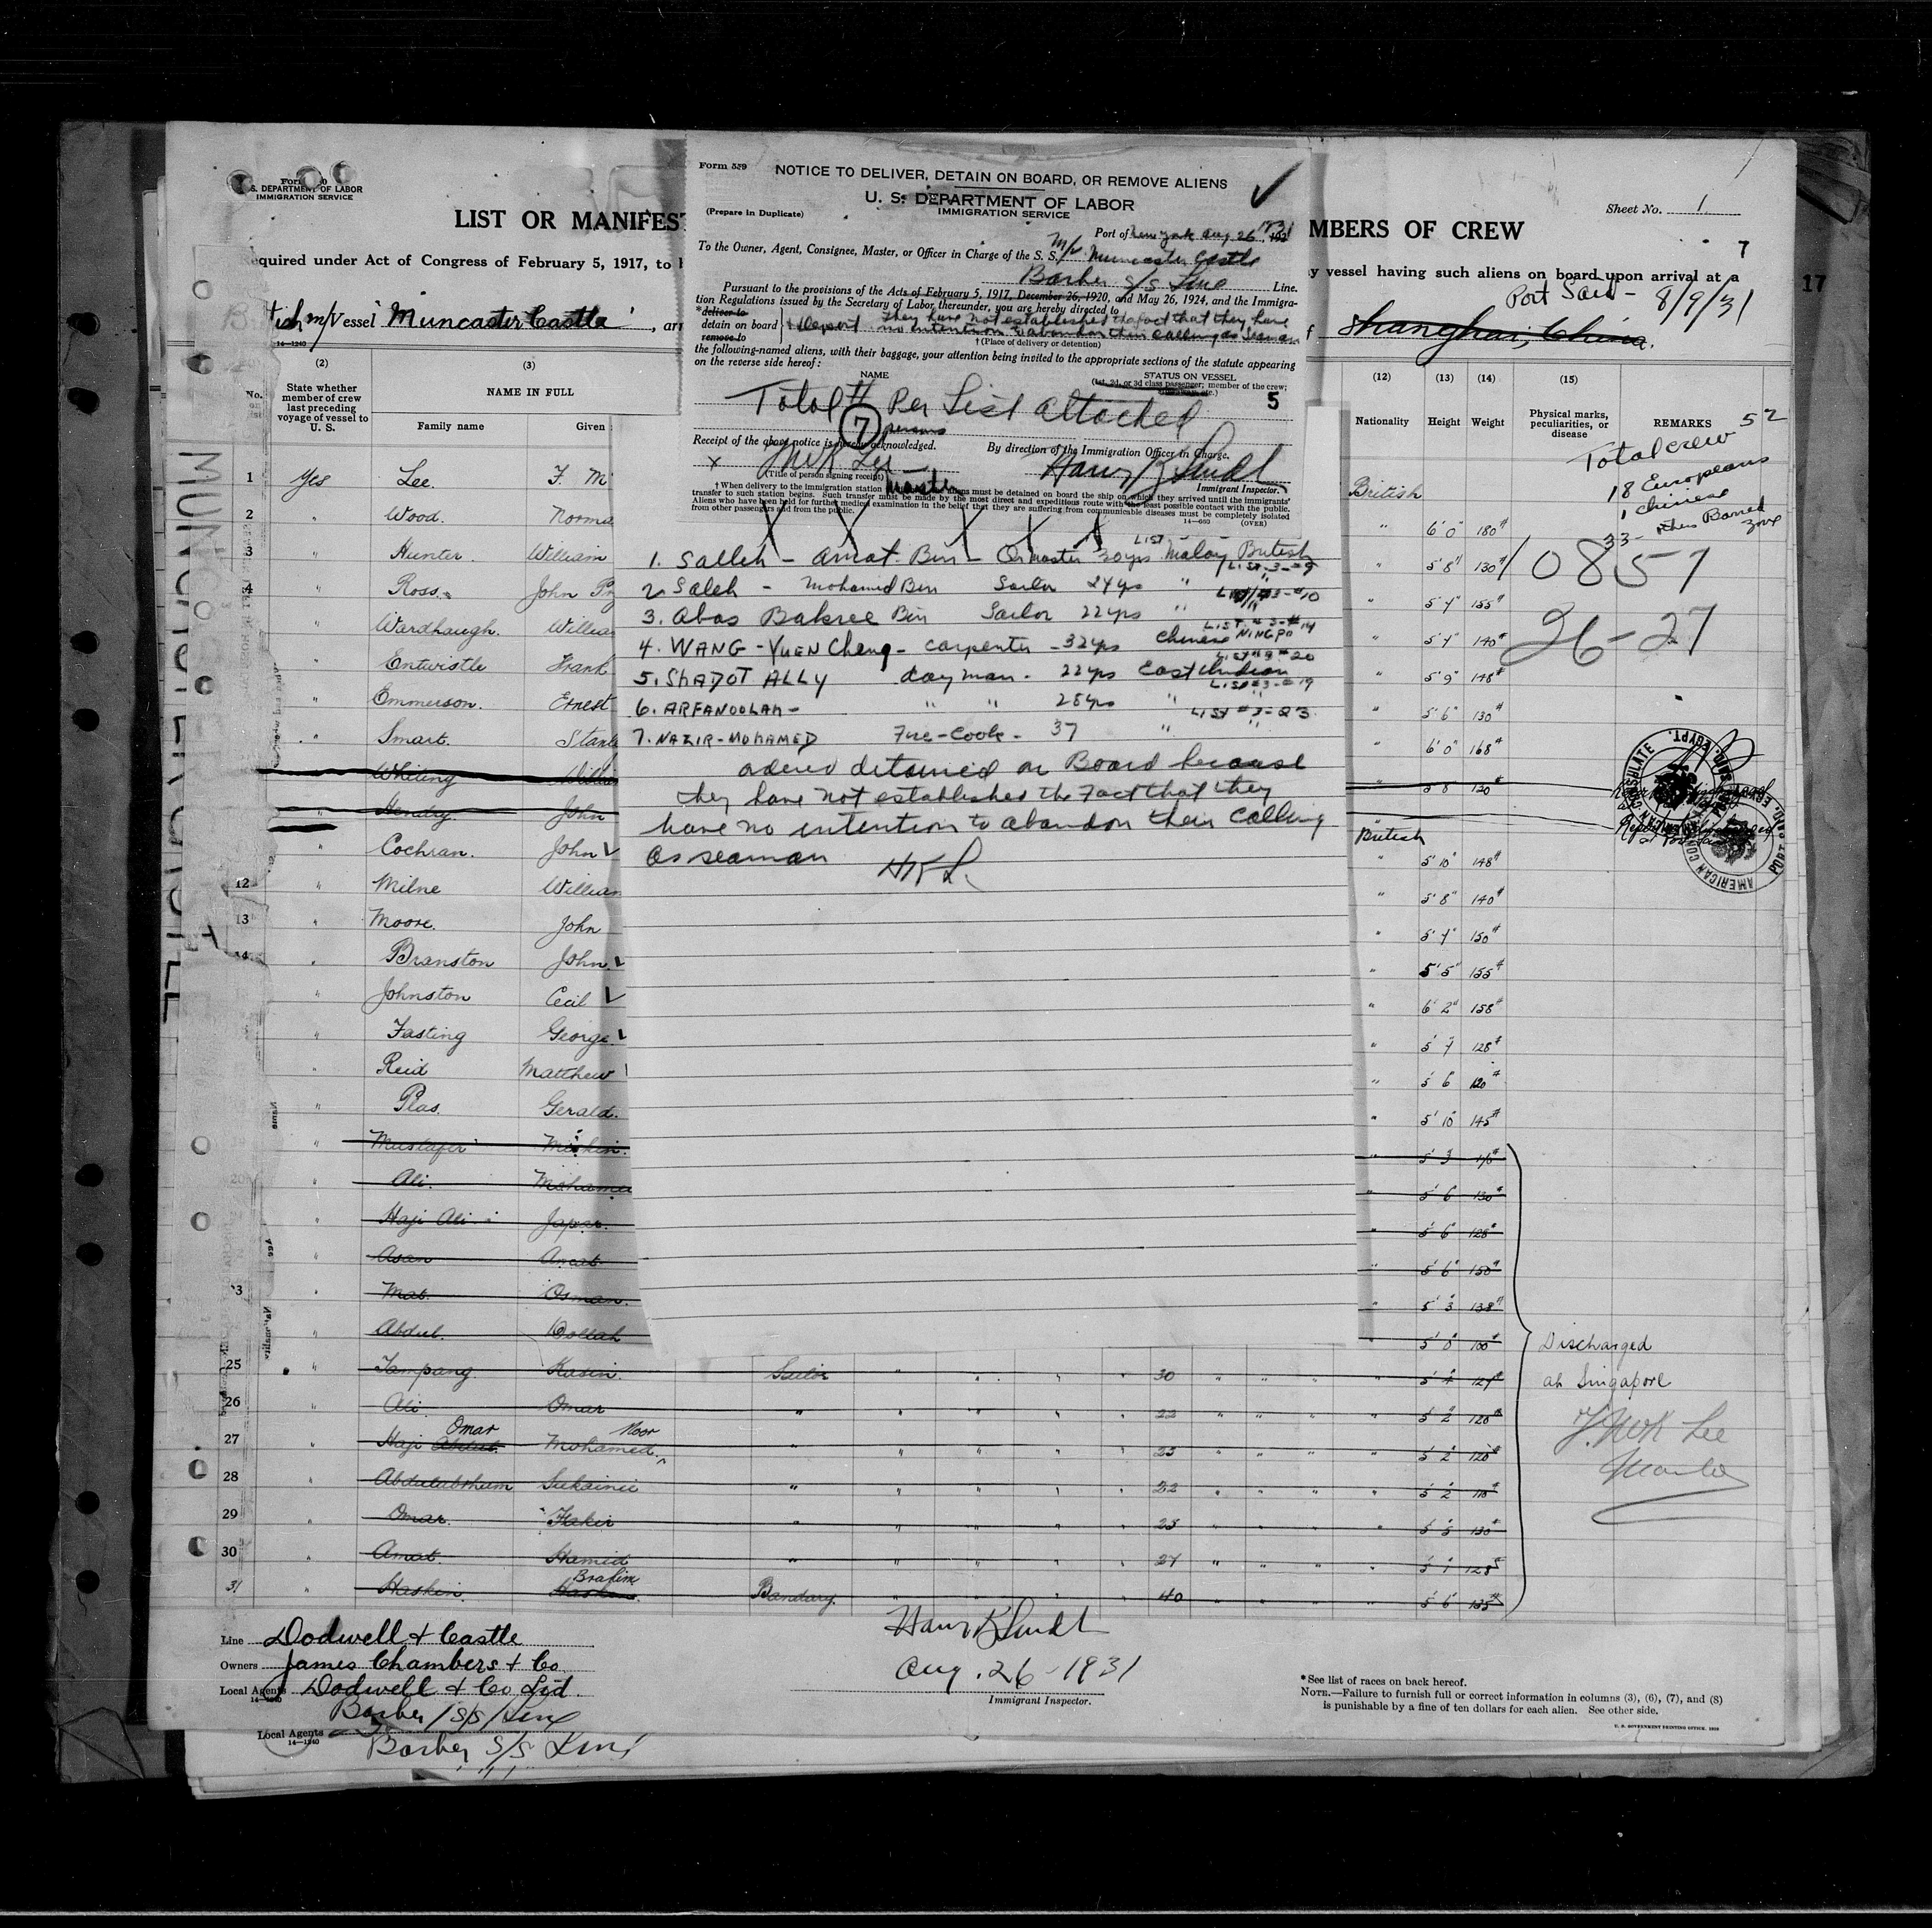 Form 559
NOTICE TO DELIVER, DETAIN ON BOARD, OR REMOVE ALIENS
(Prepare in Duplicate)
U. S. DEPARTMENT OF LABOR
IMMIGRATION SERVICE
Port of New York Aug 26 1931
To the Owner, Agent, Consignee, Master, or Officer in Charge of the S. S. M/V Muncaster Castle
Barber S/S Line Line.
Pursuant to the provisions of the Acts of February 5, 1917, December 26, 1920, and May 26, 1924, and the Immigra-
tion Regulations issued by the Secretary of Labor thereunder, you are hereby directed to
*deliver to
detain on board
remove to
& Deport They have not established the fact that they have
no intention to abandon their calling as seaman
† (Place of delivery or detention)
the following-named aliens, with their baggage, your attention being invited to the appropriate sections of the statute appearing
on the reverse side hereof:
NAME
STATUS ON VESSEL
(1st, 2d, or 3d class passenger; member of the crew;
5
Total # Per List Attached
7 persons
Receipt of the above notice is hereby acknowledged.
By direction of the Immigration Officer in Charge.
X
(Title of person signing receipt)
Master
Immigrant Inspector.
† When delivery to the immigration station
aliens must be detained on board the ship on which they arrived until the immigrants'
transfer to such station begins. Such transfer must be made by the most direct and expeditious route with the least possible contact with the public.
Aliens who have been held for further medical examination in the belief that they are suffering from communicable diseases must be completely isolated
from other passengers and from the public.
14—660
(OVER)
X X X X X
LIST
1. Salleh - Amat Bin - Qr master 30 yrs Malay British
LIST-3-#9
2. Saleh - Mohamed Bin Sailor 24 yrs "
3-#10
3. Abas Bakree Bin Sailor 22 yrs " "
LIST #3-#14
4. WANG - YUEN Cheng - carpenter - 32 yrs Chinese NINGPO
20
5. SHADOT ALLY day man - 22 yrs East Indian
LIST #3-#19
6. ARFANOOLAH - " " 28 yrs " "
LIST #3-23
7. NAZIR-MOHAMED Fire-Cook - 37 " "
ordered detained on Board because
they have not established the Fact that they
have no intention to abandon their calling
as seaman
HKL
S. DEPARTMENT OF LABOR
IMMIGRATION SERVICE
LIST OR MANIFEST
MBERS OF CREW
Sheet No. 1
7
17
equired under Act of Congress of February 5, 1917, to
y vessel having such aliens on board upon arrival at a
m/Vessel Muncaster Castle
Port Said - 8/9/31
Shanghai, China.
14—1240
No.
(2)
State whether
member of crew
last preceding
voyage of vessel to
U. S.
(3)
NAME IN FULL
Family name
Given
(12)
Nationality
(13)
Height
(14)
Weight
(15)
Physical marks,
peculiarities, or
disease
REMARKS
Total crew 52
18 Europeans
1 chinese
33- others Barred
zone
0857
26-27
1 Yes Lee. F. British
2 " Wood. Norma " 6' 0" 180#
3 " Hunter. William " 5' 8" 130#
4 " Ross. John " 5' 7" 155#
" Wardhaugh. Willia " 5' 7" 140#
" Entwistle Frank " 5' 9" 148#
" Emmerson. Ernest " 5' 6" 130#
" Smart. Stan " 6' 0" 168#
Whiting Willia " 5 8 130#
" Hendry John "
" Cochran. John British 5' 10" 148#
12 " Milne William " 5' 8" 140#
13 " Moore. John " 5' 7" 150#
14 " Branston John. " 5' 5" 155#
" Johnston Cecil " 6' 2" 158#
" Fasting George " 5' 7" 128#
" Reid Matthew " 5' 6" 120#
" Plas. Gerald. " 5' 10" 145#
" Mustafir " 5' 3
" Ali. Mohame " 5' 6" 130#
" Haji Ali Japar. 5' 6" 128#
" Asan Amat " 5' 6" 150#
" Mat. Osman. " 5' 3" 138#
" Abdul.
25 " Tampang Kasin. Sailor " " " " 30 " " " "
26 " Ali Omar " " " " " 22 " " " " 5' 2" 120#
27 " Haji Abdul. Omar Mohamed. Noor " " " " " 23 " " " " 5' 2" 120#
28 " Sukainie " " " " " 22 " " " " 5' 2"
29 " Omar. " " " " " 23 " " " " 5' 5" 130#
30 " Amat. Hamid " " " " " 27 " " " " 5' 1" 128#
31 " Haskin. Brahim Bandary. " " " " 40 " " " " 5' 6" 135#
Discharged
at Singapore
Lee
Master
AMERICAN CONSULATE PORT SAID, EGYPT.
Line Dodwell & Castle
Owners James Chambers & Co.
Local Agents Dodwell & Co Ltd.
14—1240
Barber S/S Line
Local Agents
14—1240
Barber S/S Line
Aug. 26-1931
Immigrant Inspector.
*See list of races on back hereof.
NOTE.—Failure to furnish full or correct information in columns (3), (6), (7), and (8)
is punishable by a fine of ten dollars for each alien. See other side.